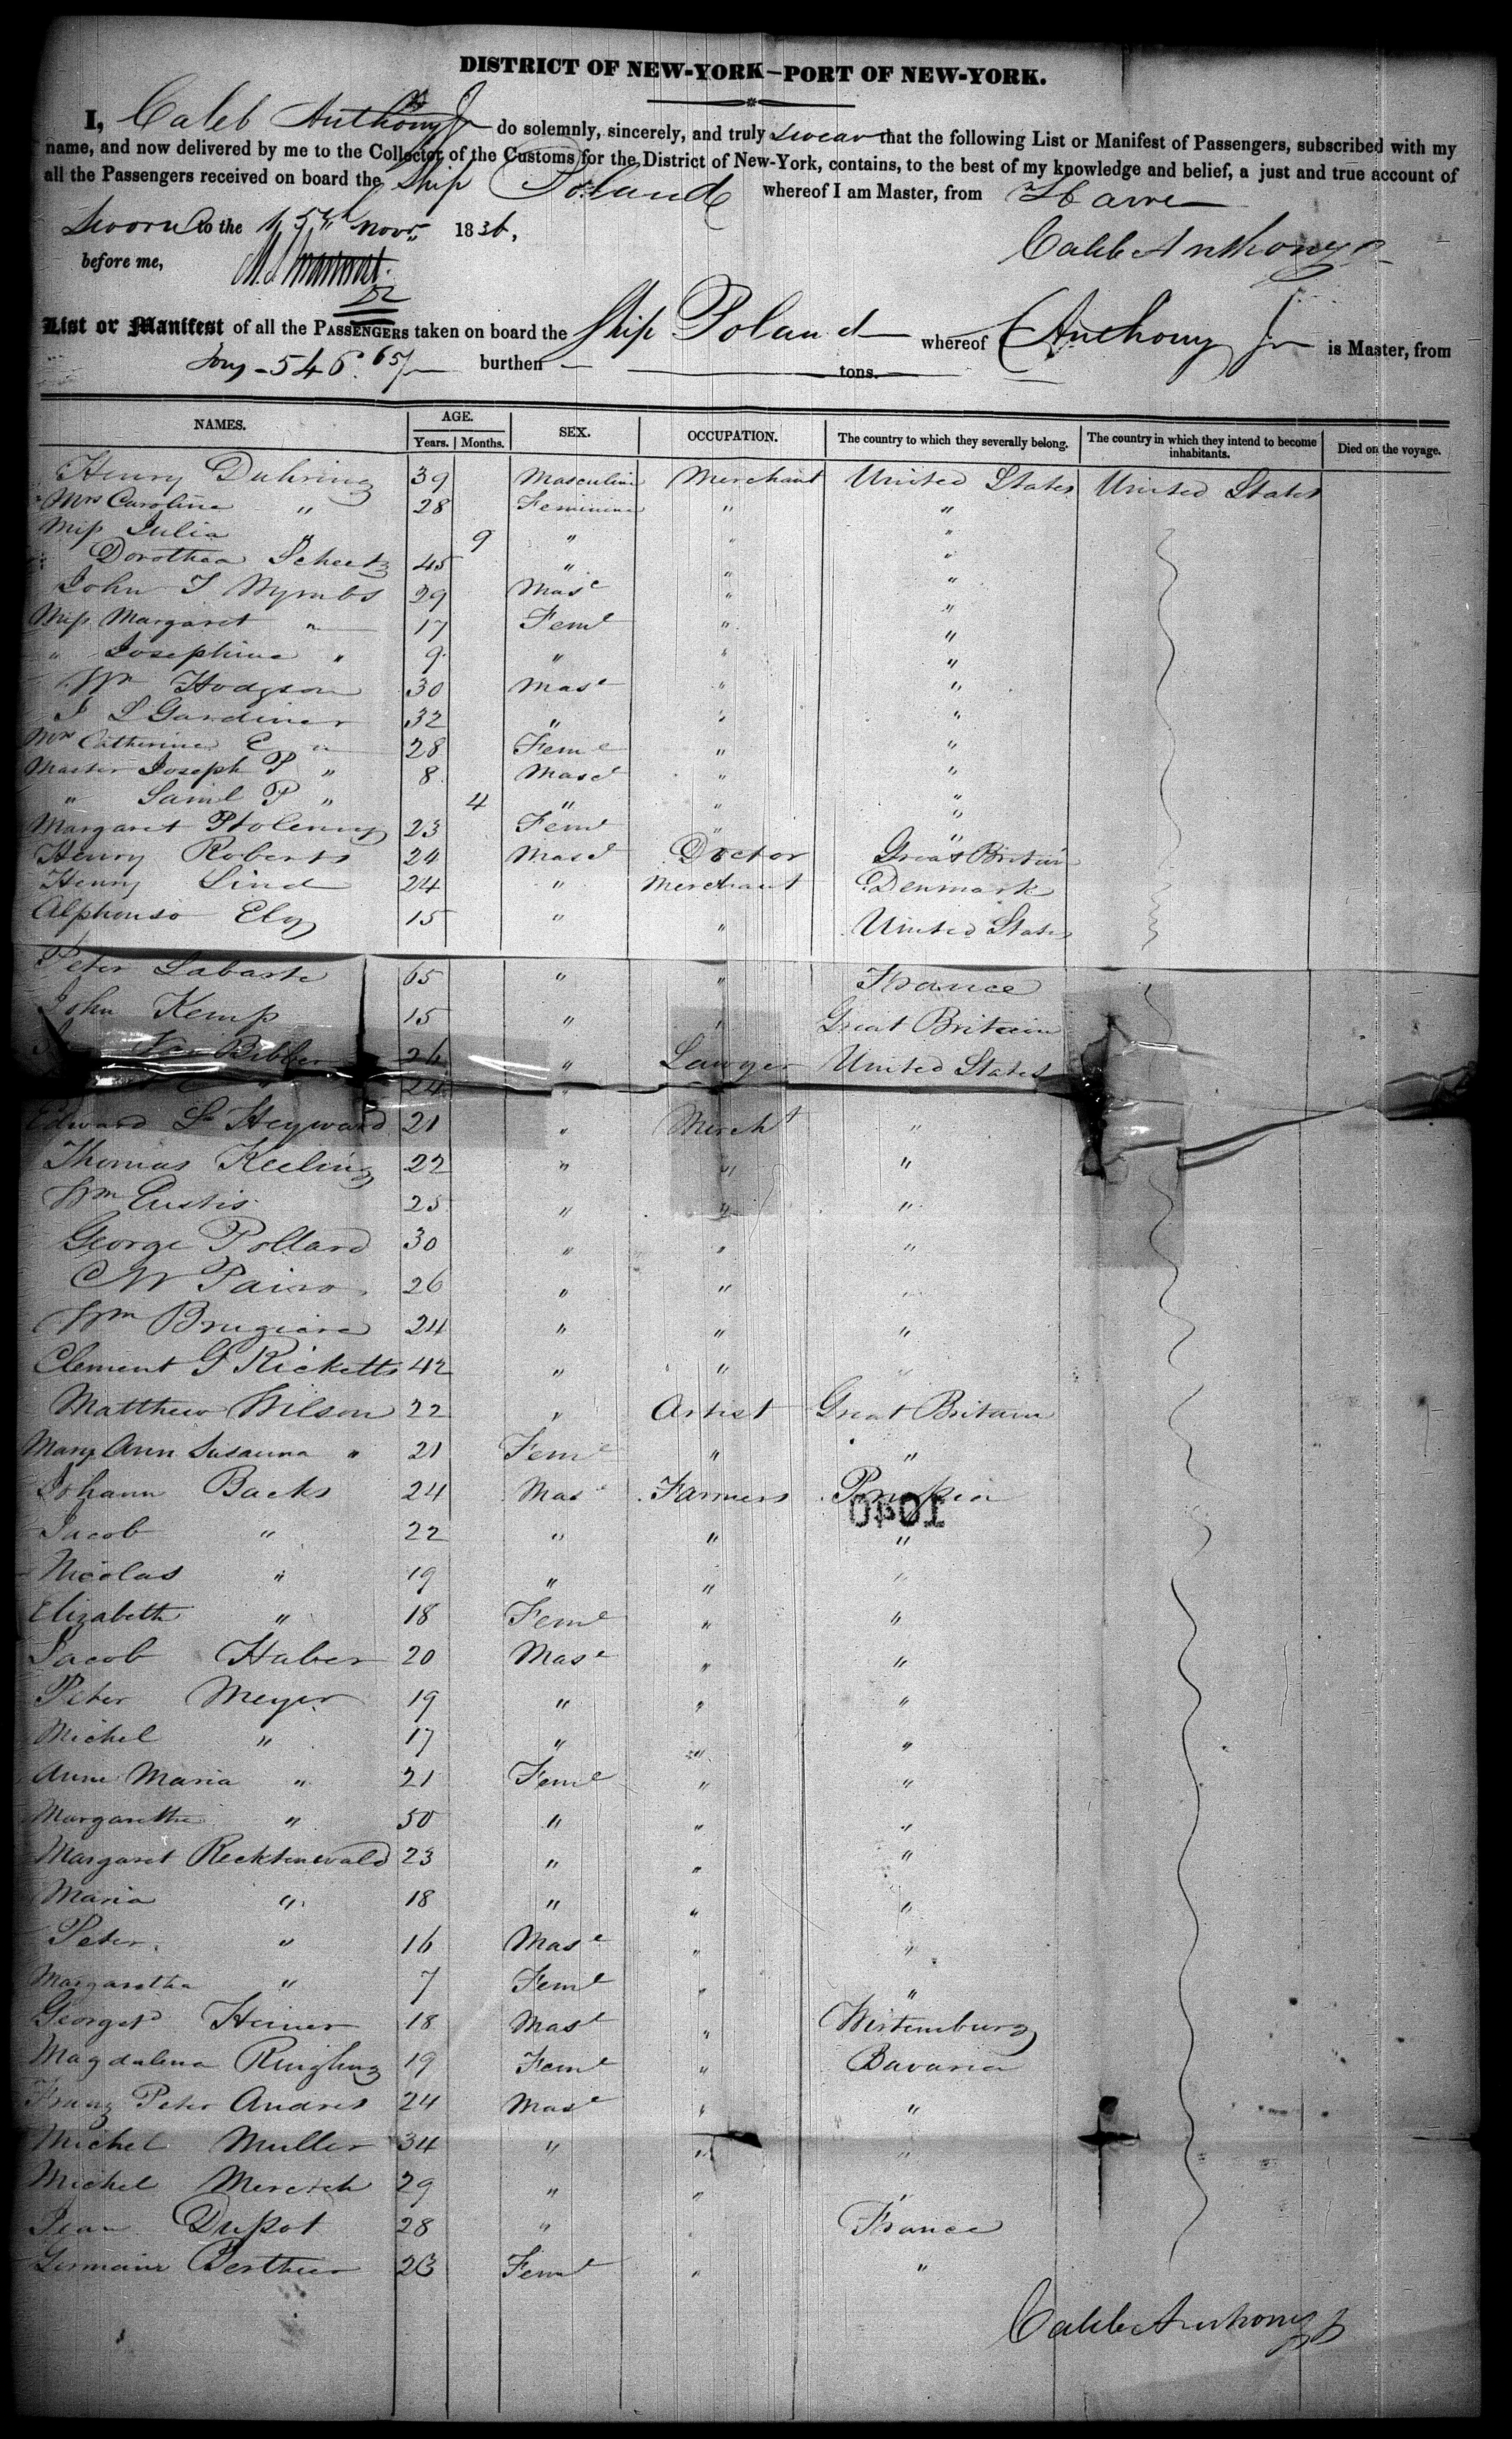 DISTRICT OF NEW-YORK–PORT OF NEW-YORK.
I, Caleb Anthony Jr do solemnly, sincerely, and truly swear that the following List or Manifest of Passengers, subscribed with my
name, and now delivered by me to the Collector of the Customs for the District of New-York, contains, to the best of my knowledge and belief, a just and true account of
all the Passengers received on board the Ship Poland whereof I am Master, from Havre
Sworn to the 15th Novr 1836,
before me,
Caleb Anthony Jr
List or Manifest of all the PASSENGERS taken on board the Ship Poland whereof C Anthony Jr is Master, from
Tons - 546. 65/ burthen tons.
NAMES. AGE. SEX. OCCUPATION. The country to which they severally belong. The country in which they intend to become inhabitants. Died on the voyage.
Years. Months.
Henry Duhring 39 Masculine Merchant United States United States
Mrs Caroline " 28 Feminine " "
Miss Julia " 9 " " "
" Dorothea Scheetz 45 " " "
John T Wymbs 29 Masc " "
Miss Margaret " 17 Feme " "
" Josephine " 9 " " "
Wm Hodgson 30 Masc " "
J L Gardiner 32 " " "
Mrs Catherine E " 28 Feme " "
Master Joseph P " 8 Masc " "
" Saml P " 4 " " "
Margaret Ptolemy 23 Feme " "
Henry Roberts 24 Masc Doctor Great Britain
Henry Lind 24 " Merchant Denmark
Alphonso Eloy 15 " " United States
Peter Labarte 65 " " France
John Kemp 15 " " Great Britain
Van Bibber 26 " Lawyer United States
24 "
Edward L Heyward 21 " Mercht "
Thomas Keeling 22 " " "
Wm Eustis 25 " " "
George Pollard 30 " " "
C W Pairo 26 " " "
Wm Brugiere 24 " " "
Clement G Ricketts 42 " " "
Matthew Wilson 22 " Artist Great Britain
Mary Ann Susanna " 21 Feme " "
Johann Backs 24 Masc Farmers Prussia
Jacob " 22 " " "
Nicolas " 19 " " "
Elizabeth " 18 Feme " "
Jacob Haber 20 Masc " "
Peter Meyer 19 " " "
Michel " 17 " " "
Anne Maria " 21 Feme " "
Margarethe " 50 " " "
Margaret Recktenwald 23 " " "
Maria " 18 " " "
Peter " 16 Masc " "
Margaretha " 7 Feme " "
George Heiner 18 Masc " Wirtemburg
Magdalena 19 Feme " Bavaria
Franz Peter Andres 24 Masc " "
Michel Muller 34 " " "
Michel 29 " "
Jean Dupot 28 " France
Germaine Berthier 23 Feme " "
Caleb Anthony Jr